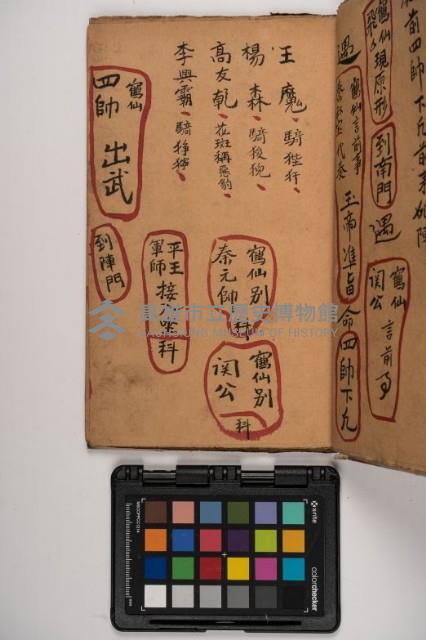 鶴仙現原形
到南門
遇
遇
鶴仙言前事
玉帝准旨命四帥下凡
鶴仙
関公
言前事
王魔 騎狴犴
楊森 騎狻猊
高友乾 花斑
李興霸 騎猙獰
鶴仙
四帥 出武
到陣門
鶴仙別
秦元帥
科
鶴仙別
関公
科
平王
軍師 接
科
高雄市立歷史博物館
KAOHSIUNG MUSEUM OF HISTORY
x-rite
colorchecker